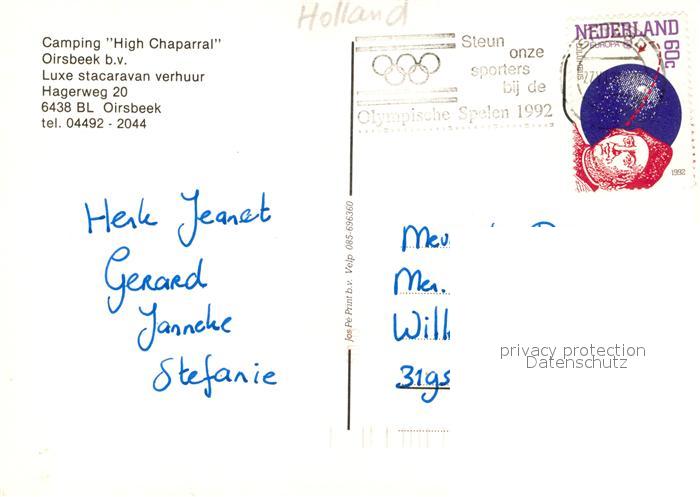 Holland
Camping "High Chaparral"
Oirsbeek b.v.
Luxe stacaravan verhuur
Hagerweg 20
6438 BL Oirsbeek
tel. 04492 - 2044
Steun
onze
sporters
bij de
Olympische Spelen 1992
NEDERLAND
60c
EUROPA
1992
Henk Jeanet
Gerard
Janneke
Stefanie
Jos Pé Print b.v. Velp 085-696360
Mev
Men.
Will
31gs
privacy protection
Datenschutz